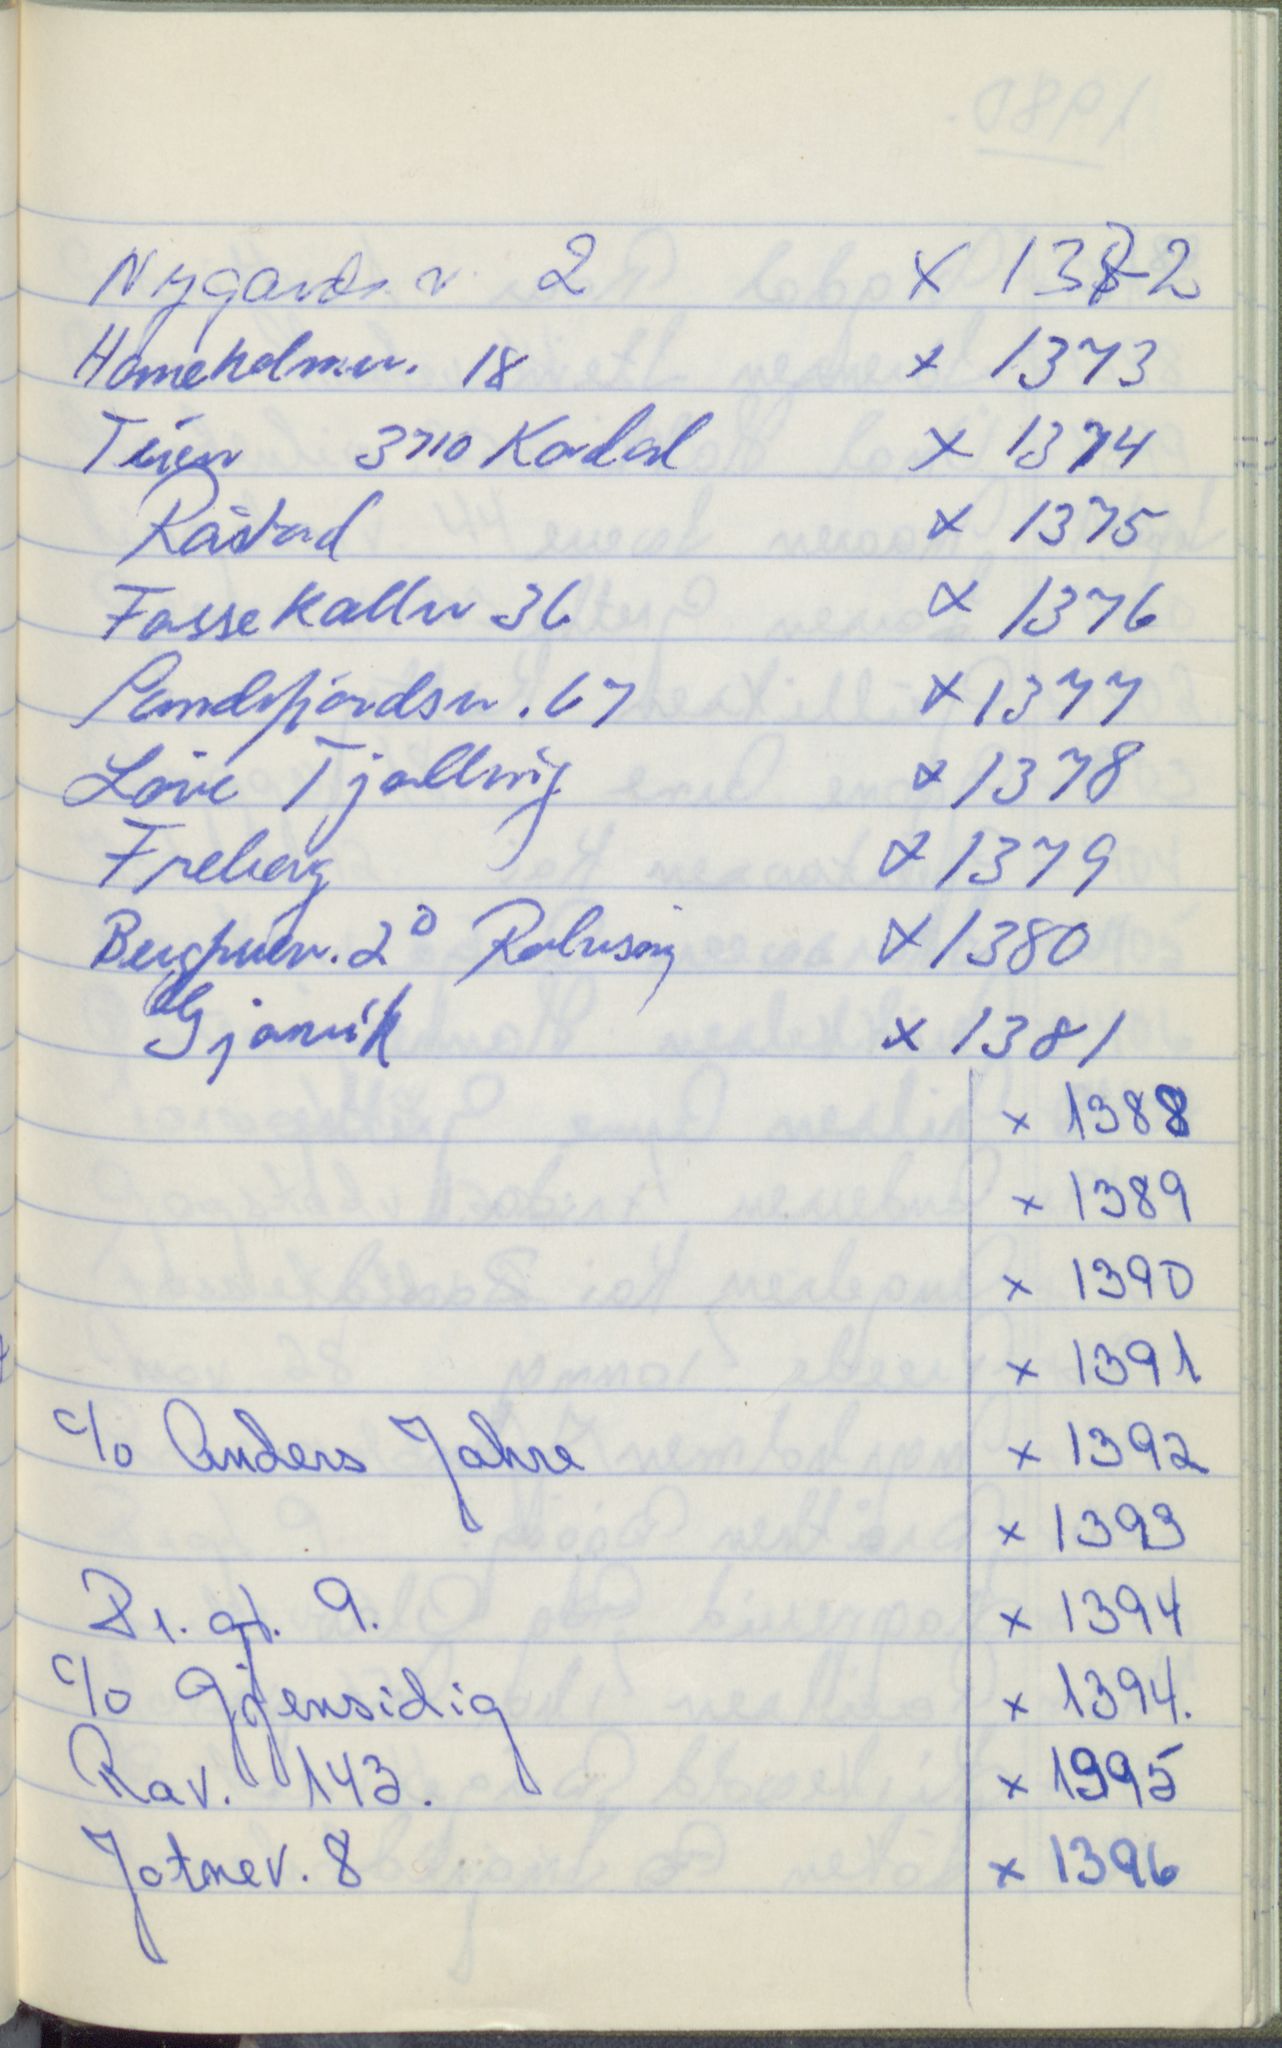 Nygards v 2 x 1372
Hameholmv. 18 x 1373
Tiren 3710 Kodal x 1374
Råstad x 1375
Fossekallv 36 x 1376
Sandefjordsv. 67 x 1377
Løve Tjølling x 1378
Freberg x 1379
2 D x 1380
Gjøvik x 1381
x 1388
x 1389
x 1390
x 1391
c/o Anders Jahre x 1392
x 1393
gt. 9. x 1394
c/o Gjensidig x 1394.
Rav. 143. x 1395
Jotnev. 8 x 1396